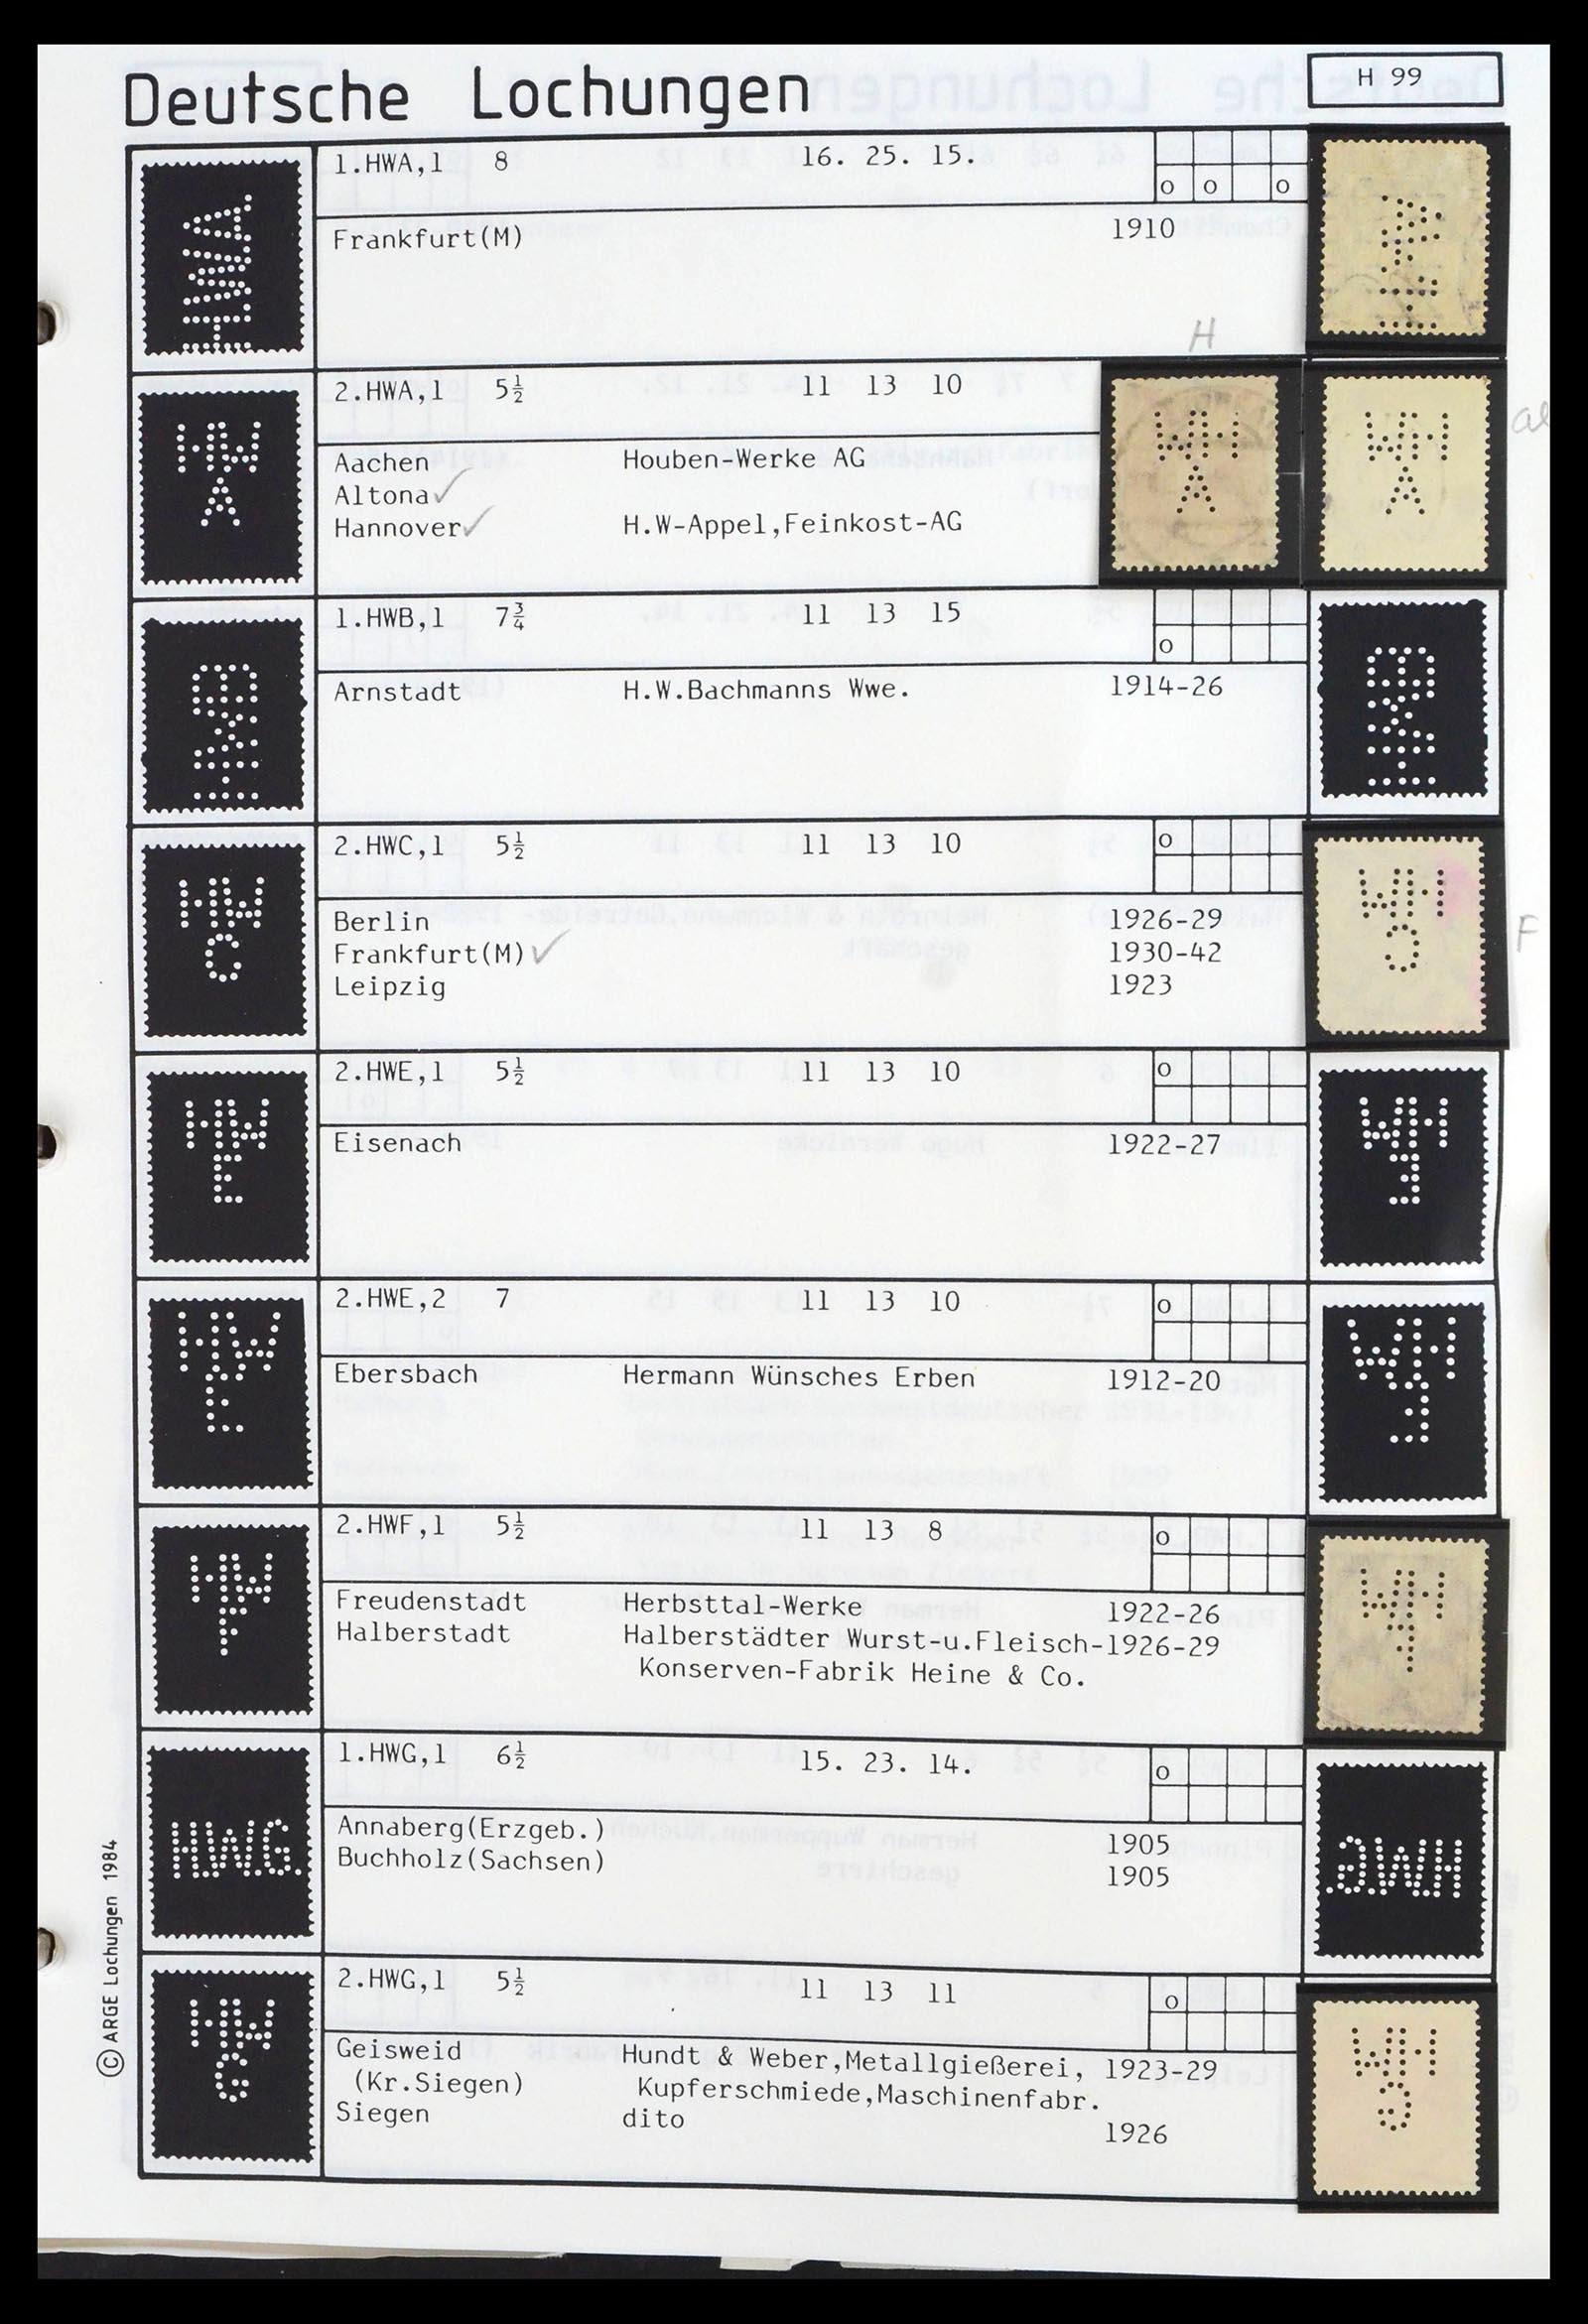 Deutsche Lochungen
H 99
HWA
1.HWA,1 8 16. 25. 15.
o o o
Frankfurt(M) 1910
H
HW
A
2.HWA,1 5½ 11 13 10
Aachen Houben-Werke AG
Altona✓
Hannover✓ H.W-Appel,Feinkost-AG
HWB
1.HWB,1 7¾ 11 13 15
o
Arnstadt H.W.Bachmanns Wwe. 1914-26
HW
C
2.HWC,1 5½ 11 13 10
o
Berlin 1926-29
Frankfurt(M)✓ 1930-42
Leipzig 1923
F
HW
E
2.HWE,1 5½ 11 13 10
o
Eisenach 1922-27
HW
E
2.HWE,2 7 11 13 10
o
Ebersbach Hermann Wünsches Erben 1912-20
HW
F
2.HWF,1 5½ 11 13 8
o
Freudenstadt Herbsttal-Werke 1922-26
Halberstadt Halberstädter Wurst-u.Fleisch-1926-29
Konserven-Fabrik Heine & Co.
H.W.G.
1.HWG,1 6½ 15. 23. 14.
o
Annaberg(Erzgeb.) 1905
Buchholz(Sachsen) 1905
HW
G
2.HWG,1 5½ 11 13 11
o
Geisweid Hundt & Weber,Metallgießerei, 1923-29
(Kr.Siegen) Kupferschmiede,Maschinenfabr.
Siegen dito 1926
© ARGE Lochungen 1984